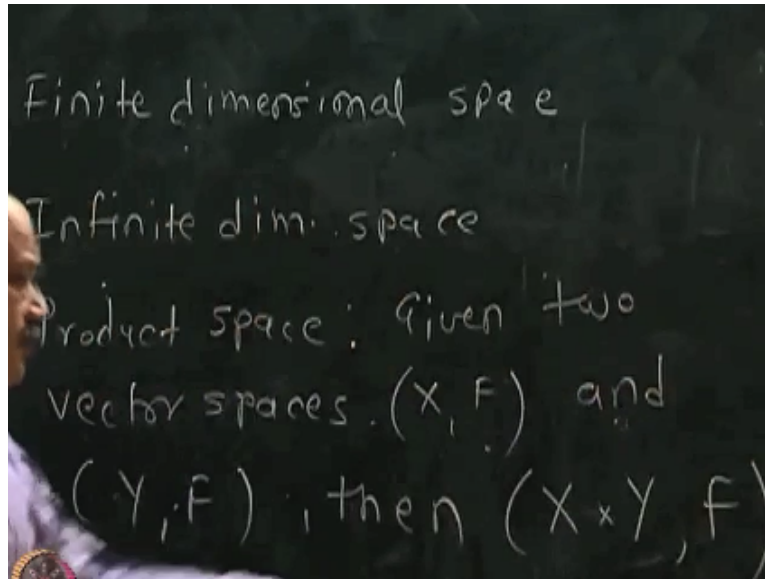 Finite dimensional spae
Infinite dim. space
Product space: Given two
vector spaces. (X, F) and
(Y, F), then (X x Y, F)